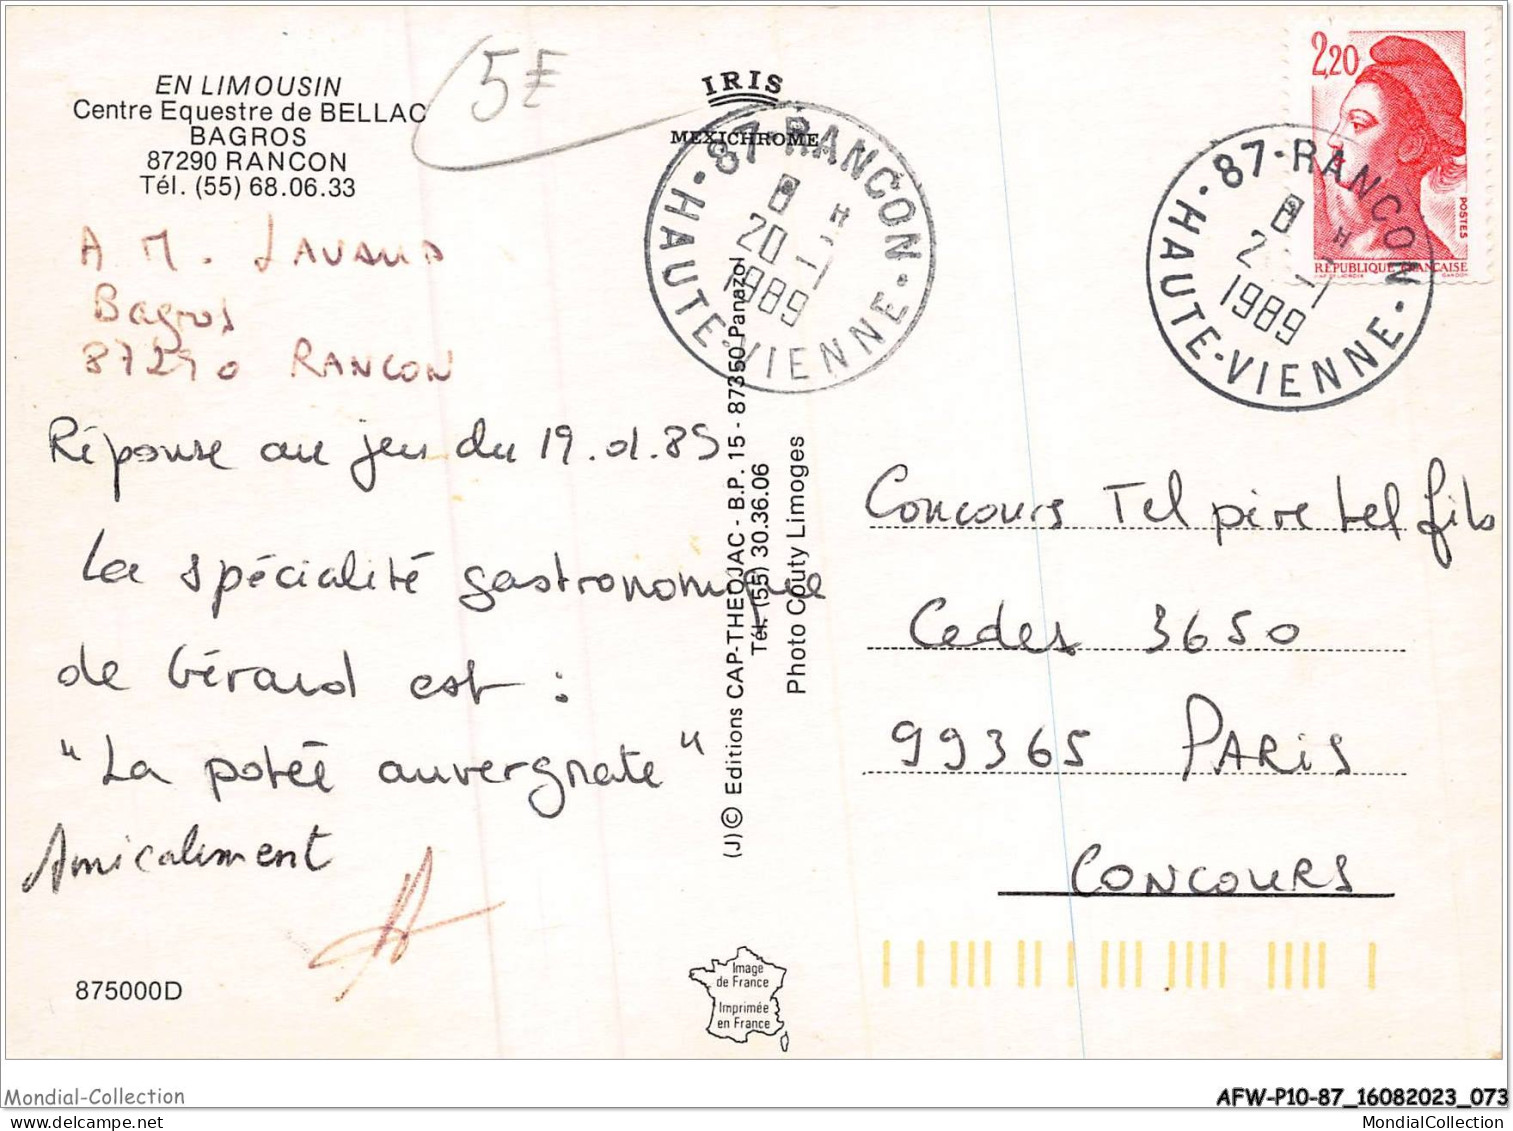 EN LIMOUSIN
Centre Equestre de BELLAC
BAGROS
87290 RANCON
Tél. (55) 68.06.33
5F
IRIS
MEXICHROME
2,20
POSTES
RÉPUBLIQUE FRANÇAISE
87-RANCON
8 H
20 -1
1989
HAUTE-VIENNE
87-RANCON
8 H
2 -1
1989
HAUTE-VIENNE
A M. LAVAUD
Bagros
87290 RANCON
Réponse au jeu du 19.01.89
La spécialité gastronomique
de Gérard est :
"La potée auvergnate"
Amicalement
875000D
(J) © Editions CAP-THEOJAC - B.P. 15 - 87350 Panazol
Tél. (55) 30.36.06
Photo Couty Limoges
Concours Tel pire tel fils
Cedex 3650
99365 PARIS
CONCOURS
Image
de France
Imprimée
en France
Mondial-Collection
AFW-P10-87_16082023_073
MondialCollection